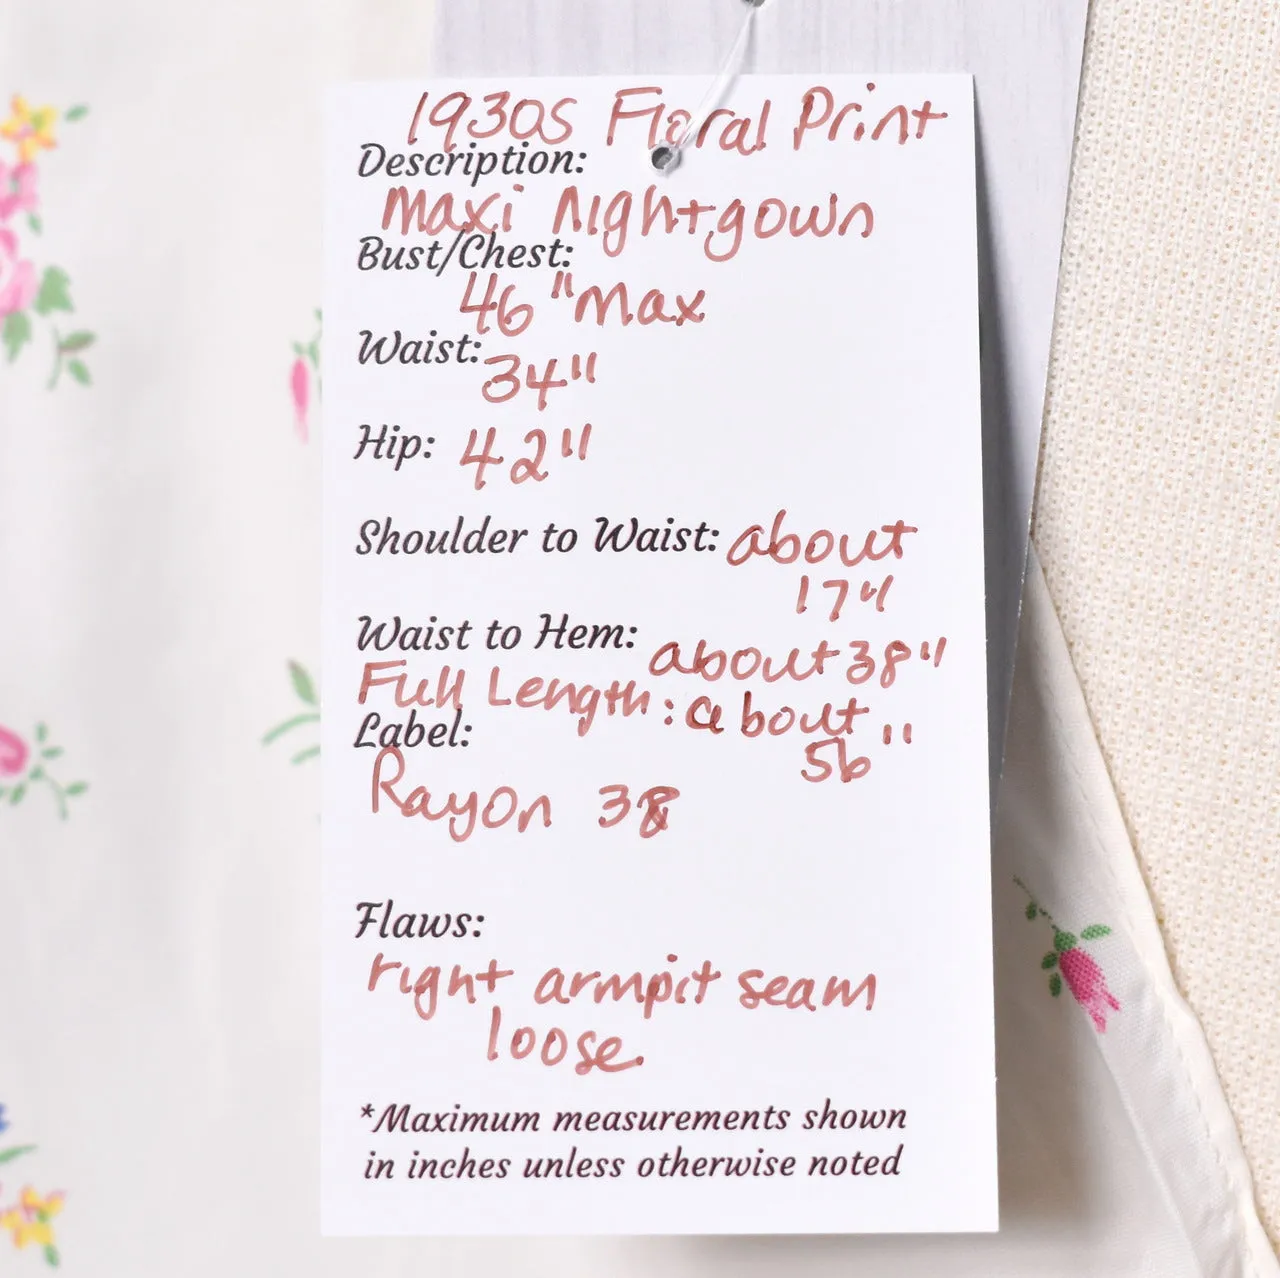 1930s Floral Print
Description:
Maxi Nightgown
Bust/Chest:
46" Max
Waist:
34"
Hip: 42"
Shoulder to Waist: about
17"
Waist to Hem: about 38"
Full Length: about
56"
Label:
Rayon 38
Flaws:
right armpit seam
loose.
*Maximum measurements shown
in inches unless otherwise noted